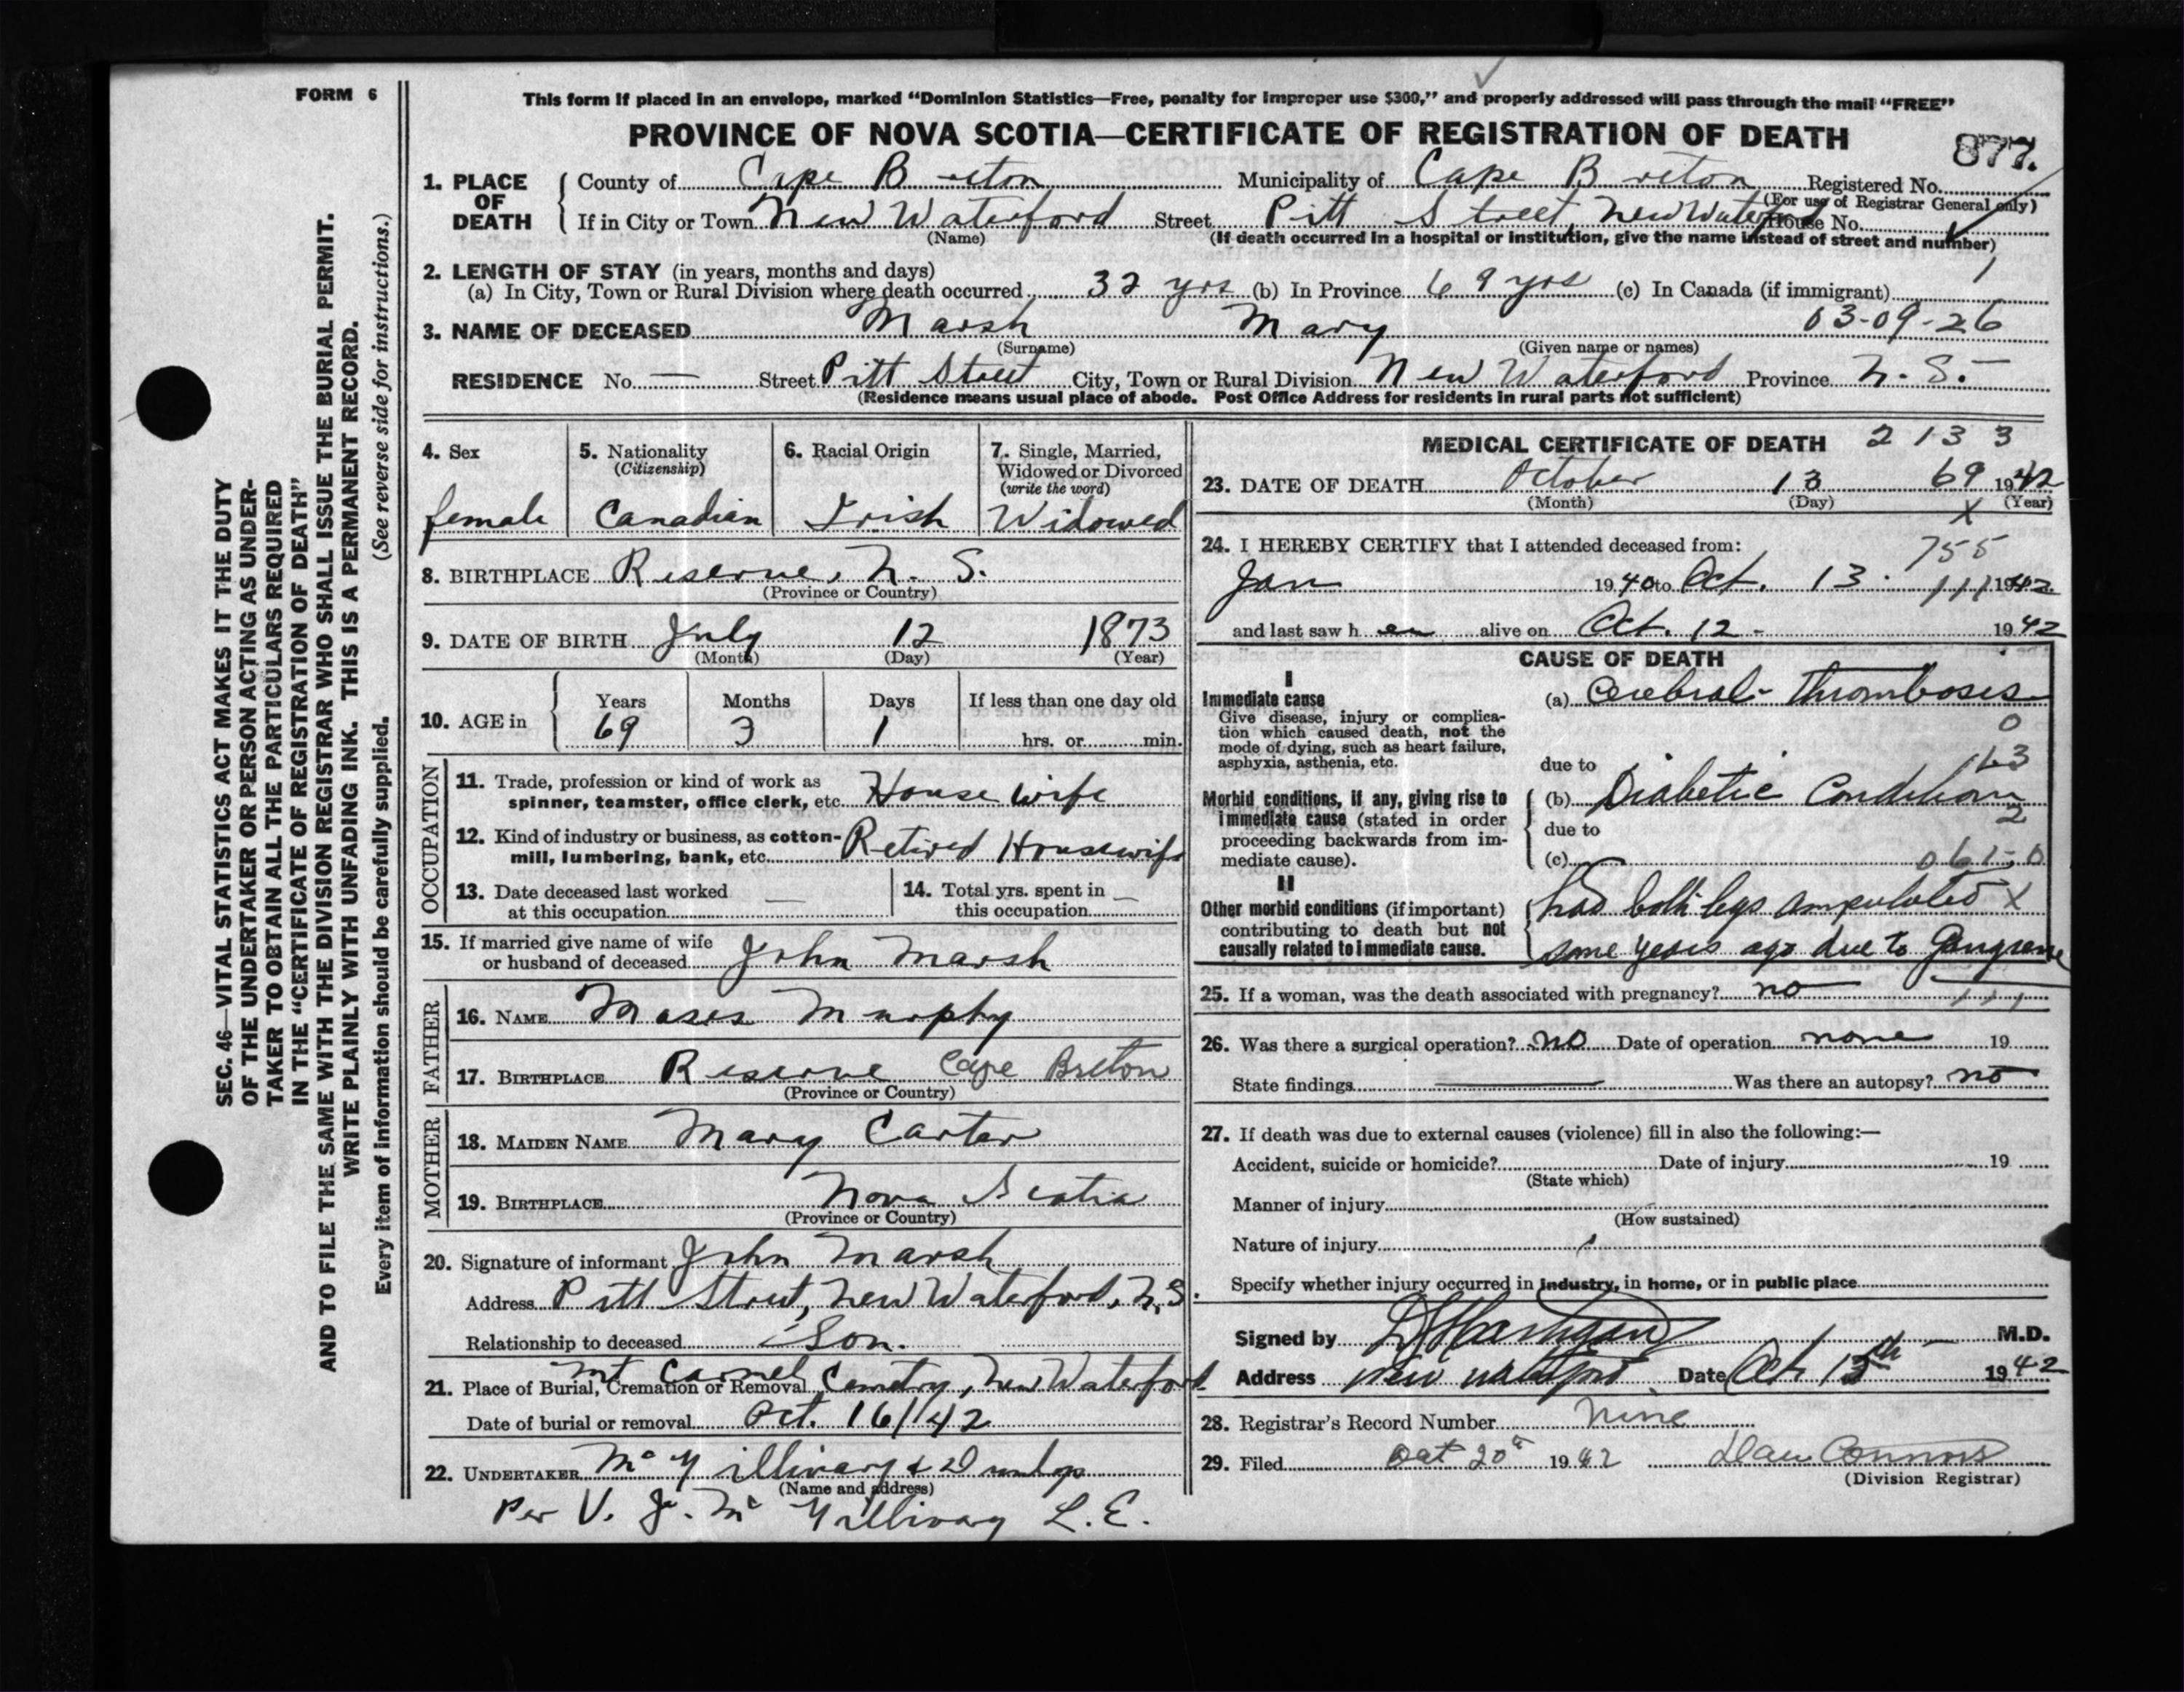 FORM 6
This form if placed in an envelope, marked “Dominion Statistics—Free, penalty for improper use $300,” and properly addressed will pass through the mail “FREE”
PROVINCE OF NOVA SCOTIA—CERTIFICATE OF REGISTRATION OF DEATH
877.
1. PLACE OF DEATH
County of Cape Breton Municipality of Cape Breton Registered No.
(For use of Registrar General only)
If in City or Town New Waterford Street Pitt Street, New Waterford House No.
(Name) (If death occurred in a hospital or institution, give the name instead of street and number)
2. LENGTH OF STAY (in years, months and days) 1
(a) In City, Town or Rural Division where death occurred 32 yrs (b) In Province 69 yrs (c) In Canada (if immigrant)
3. NAME OF DECEASED Marsh Mary 03-09-26
(Surname) (Given name or names)
RESIDENCE No. — Street Pitt Street City, Town or Rural Division New Waterford Province N. S.
(Residence means usual place of abode. Post Office Address for residents in rural parts not sufficient)
4. Sex
female
5. Nationality
(Citizenship)
Canadian
6. Racial Origin
Irish
7. Single, Married,
Widowed or Divorced
(write the word)
Widowed
8. BIRTHPLACE Reserve, N. S.
(Province or Country)
9. DATE OF BIRTH July 12 1873
(Month) (Day) (Year)
10. AGE in
Years Months Days If less than one day old
69 3 1 hrs. or min.
OCCUPATION
11. Trade, profession or kind of work as
spinner, teamster, office clerk, etc. House wife
12. Kind of industry or business, as cotton-
mill, lumbering, bank, etc. Retired Housewife
13. Date deceased last worked
at this occupation —
14. Total yrs. spent in
this occupation —
15. If married give name of wife
or husband of deceased John Marsh
FATHER
16. NAME Moses Murphy
17. BIRTHPLACE Reserve Cape Breton
(Province or Country)
MOTHER
18. MAIDEN NAME Mary Carter
19. BIRTHPLACE Nova Scotia
(Province or Country)
20. Signature of informant John Marsh
Address Pitt Street, New Waterford, N.S.
Relationship to deceased Son.
21. Place of Burial, Cremation or Removal Mt Carmel Cemetry, New Waterford
Date of burial or removal Oct. 16/42
22. UNDERTAKER McGillivary & Dunlop
(Name and address)
Per V. J. McGillivary L.E.
MEDICAL CERTIFICATE OF DEATH 2133
23. DATE OF DEATH October 13 69 1942
(Month) (Day) (Year)
x
24. I HEREBY CERTIFY that I attended deceased from:
755
Jan 1940 to Oct. 13. 111 1942
and last saw her alive on Oct. 12 - 1942
CAUSE OF DEATH
I
Immediate cause
Give disease, injury or complica-
tion which caused death, not the
mode of dying, such as heart failure,
asphyxia, asthenia, etc.
(a) Cerebral - Thrombosis
0
163
due to
Morbid conditions, if any, giving rise to
immediate cause (stated in order
proceeding backwards from im-
mediate cause).
(b) Diabetic Condition
2
due to
(c) 061-0
II
Other morbid conditions (if important)
contributing to death but not
causally related to immediate cause.
had both legs amputated x
some years ago due to Gangrene
25. If a woman, was the death associated with pregnancy? no 111
26. Was there a surgical operation? no Date of operation none 19
State findings Was there an autopsy? no
27. If death was due to external causes (violence) fill in also the following:—
Accident, suicide or homicide? Date of injury 19
(State which)
Manner of injury
(How sustained)
Nature of injury
Specify whether injury occurred in industry, in home, or in public place
Signed by M.D.
Address New Waterford Date Oct 13th 1942
28. Registrar's Record Number Nine
29. Filed Oct 20th 1942 Dan Connors
(Division Registrar)
SEC. 46—VITAL STATISTICS ACT MAKES IT THE DUTY
OF THE UNDERTAKER OR PERSON ACTING AS UNDER-
TAKER TO OBTAIN ALL THE PARTICULARS REQUIRED
IN THE “CERTIFICATE OF REGISTRATION OF DEATH”
AND TO FILE THE SAME WITH THE DIVISION REGISTRAR WHO SHALL ISSUE THE BURIAL PERMIT.
WRITE PLAINLY WITH UNFADING INK. THIS IS A PERMANENT RECORD.
Every item of information should be carefully supplied. (See reverse side for instructions.)